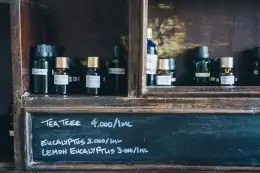 TEA TREE 4.000/1ML
EUCALYPTUS 3.000/1ML
LEMON EUCALYPTUS 3.000/1ML